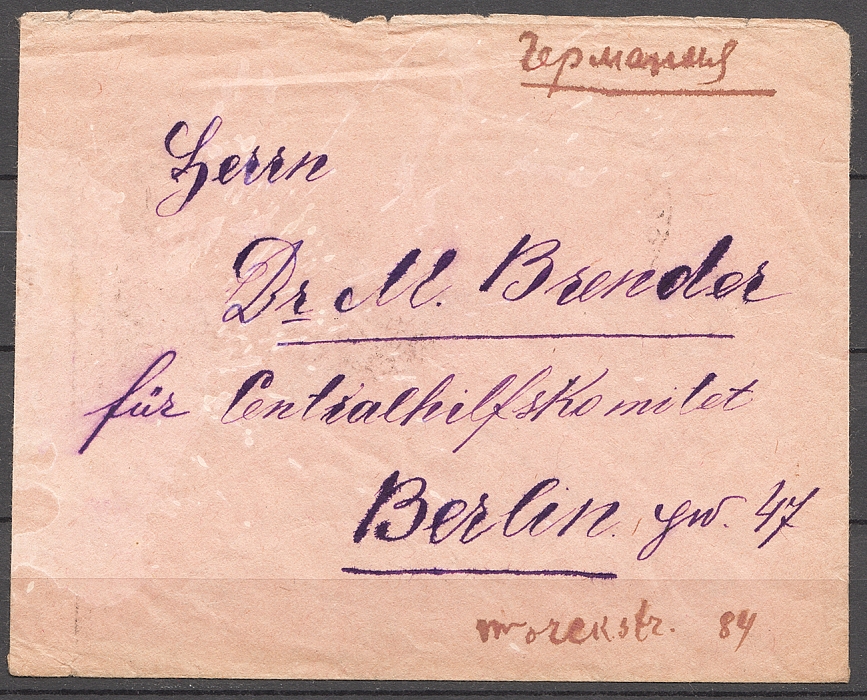 Германия
Herrn
Dr M. Brender
für Centralhilfskomitet
Berlin sw. 47
orckstr. 84